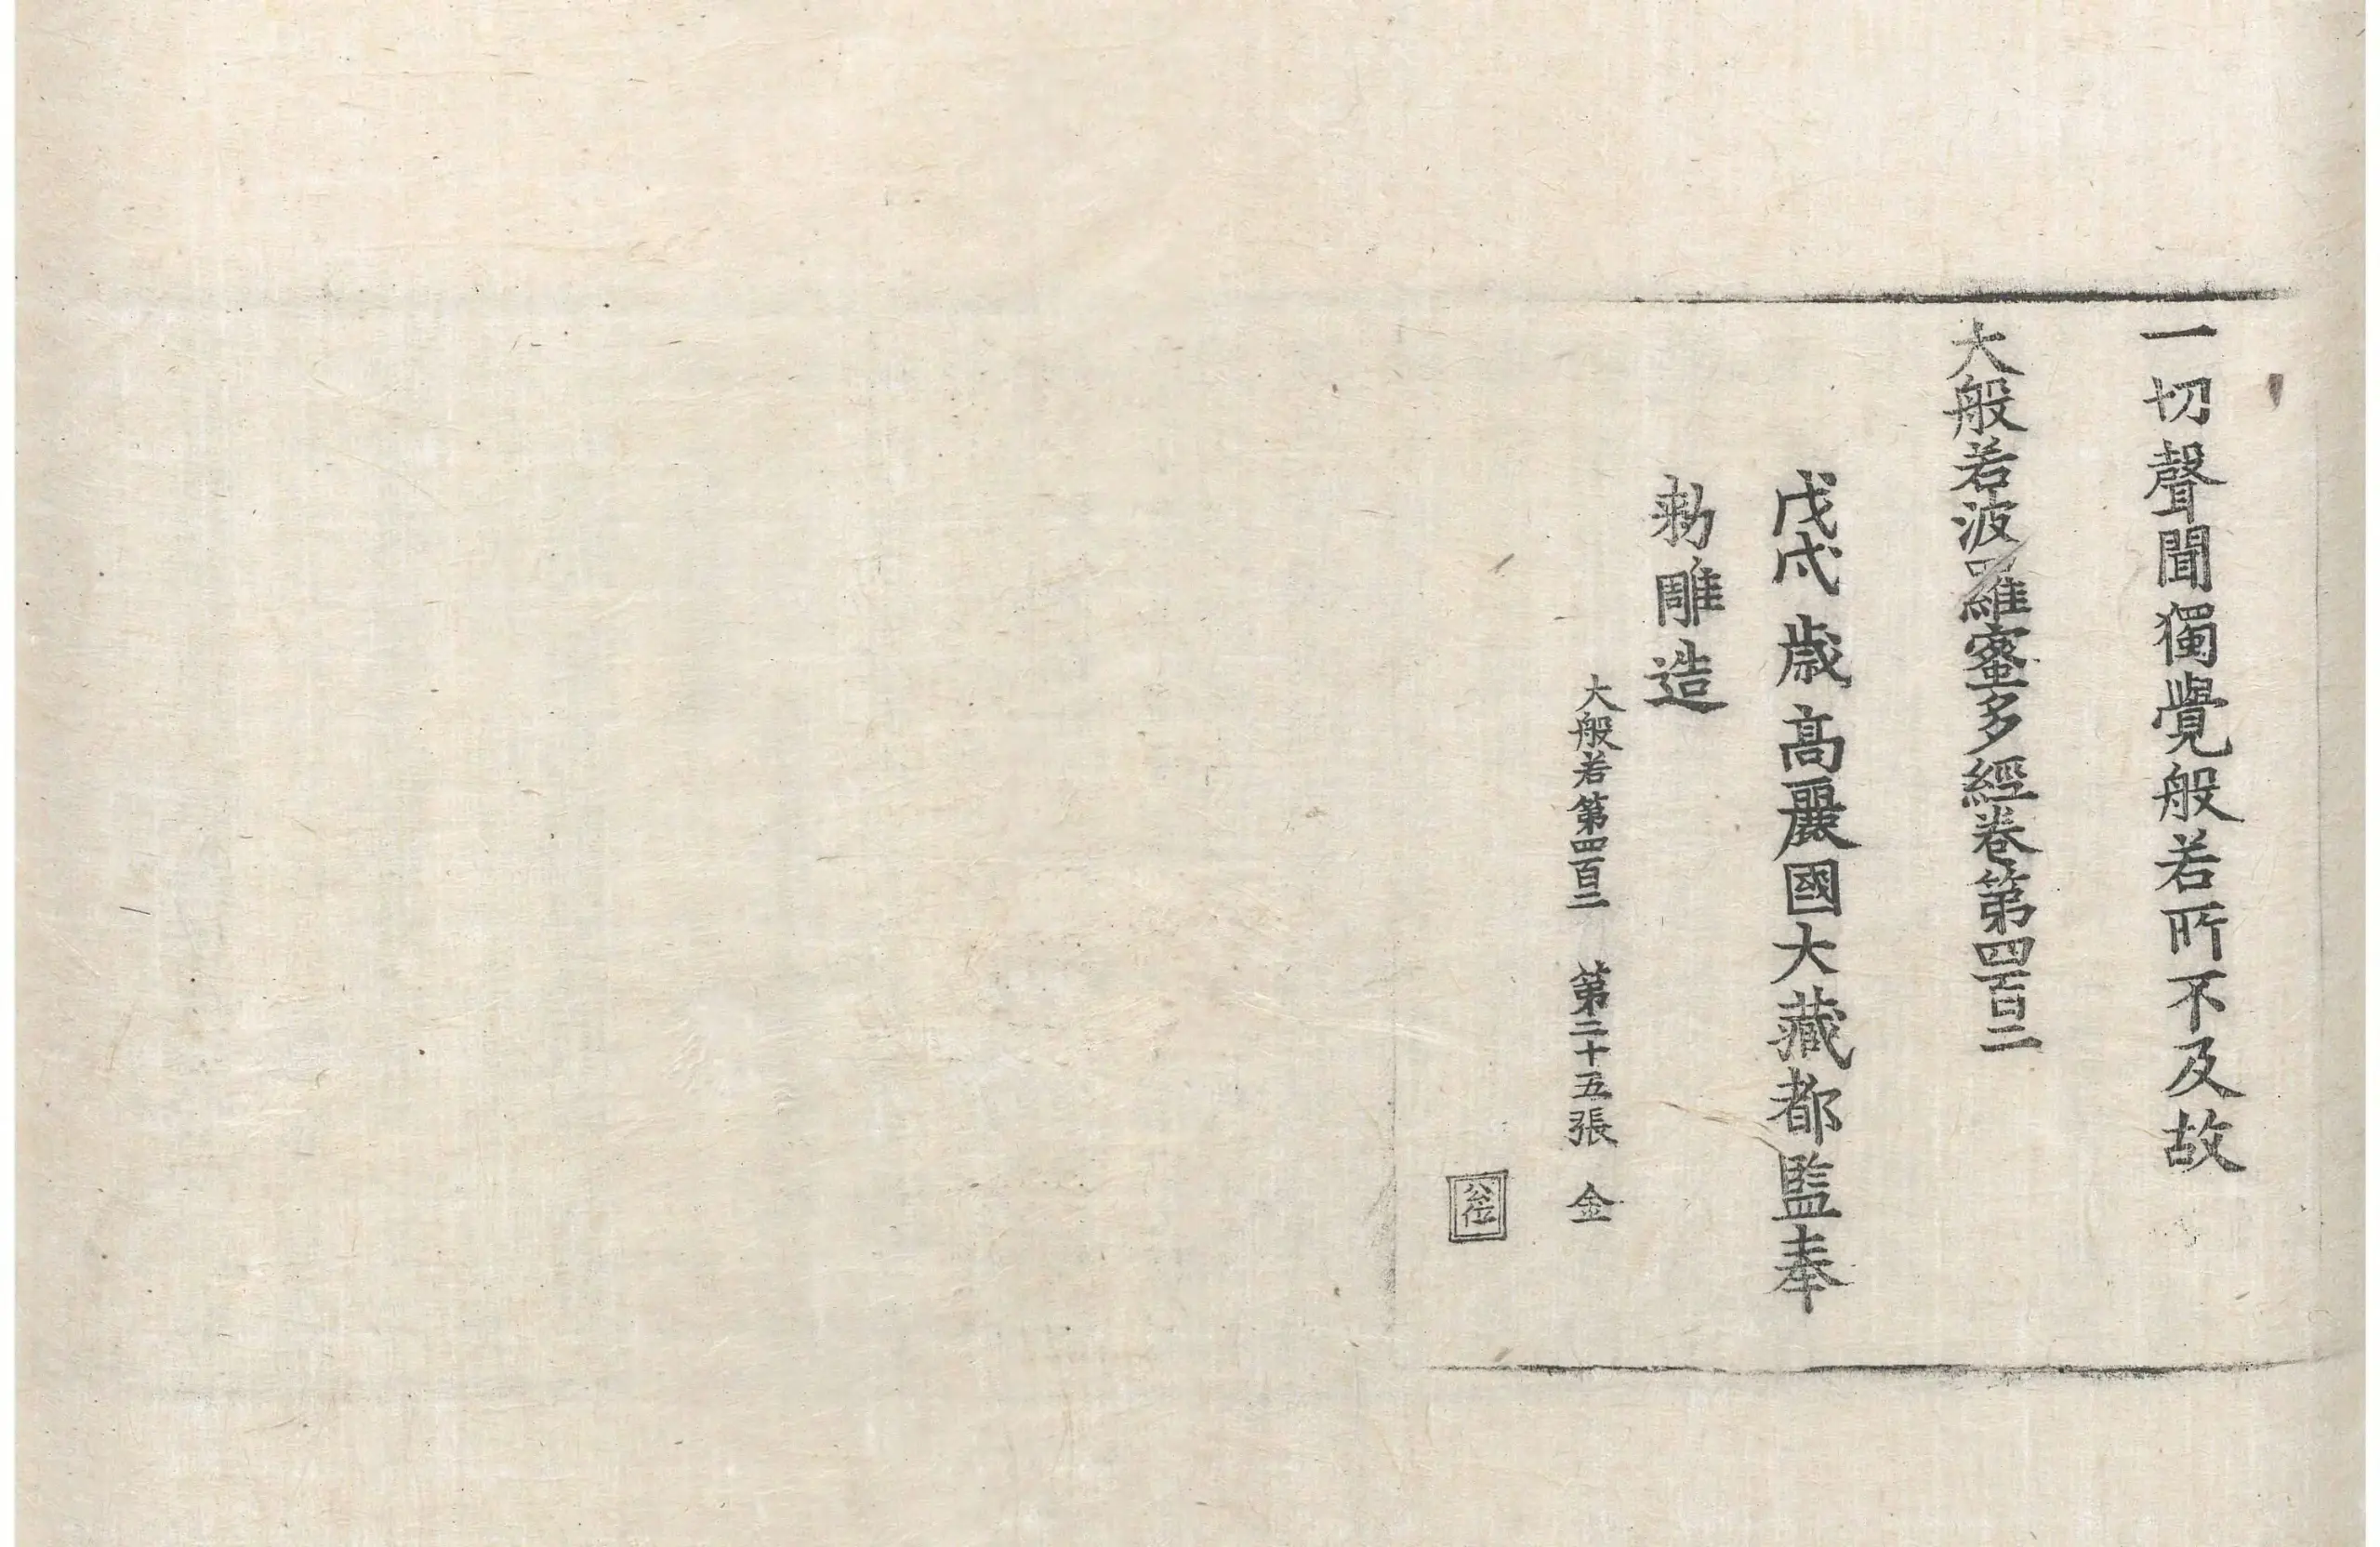 一切聲聞獨覺般若所不及故
大般若波羅蜜多經卷第四百二
戊戌歲高麗國大藏都監奉
勅雕造
大般若第四百二 第二十五張 金